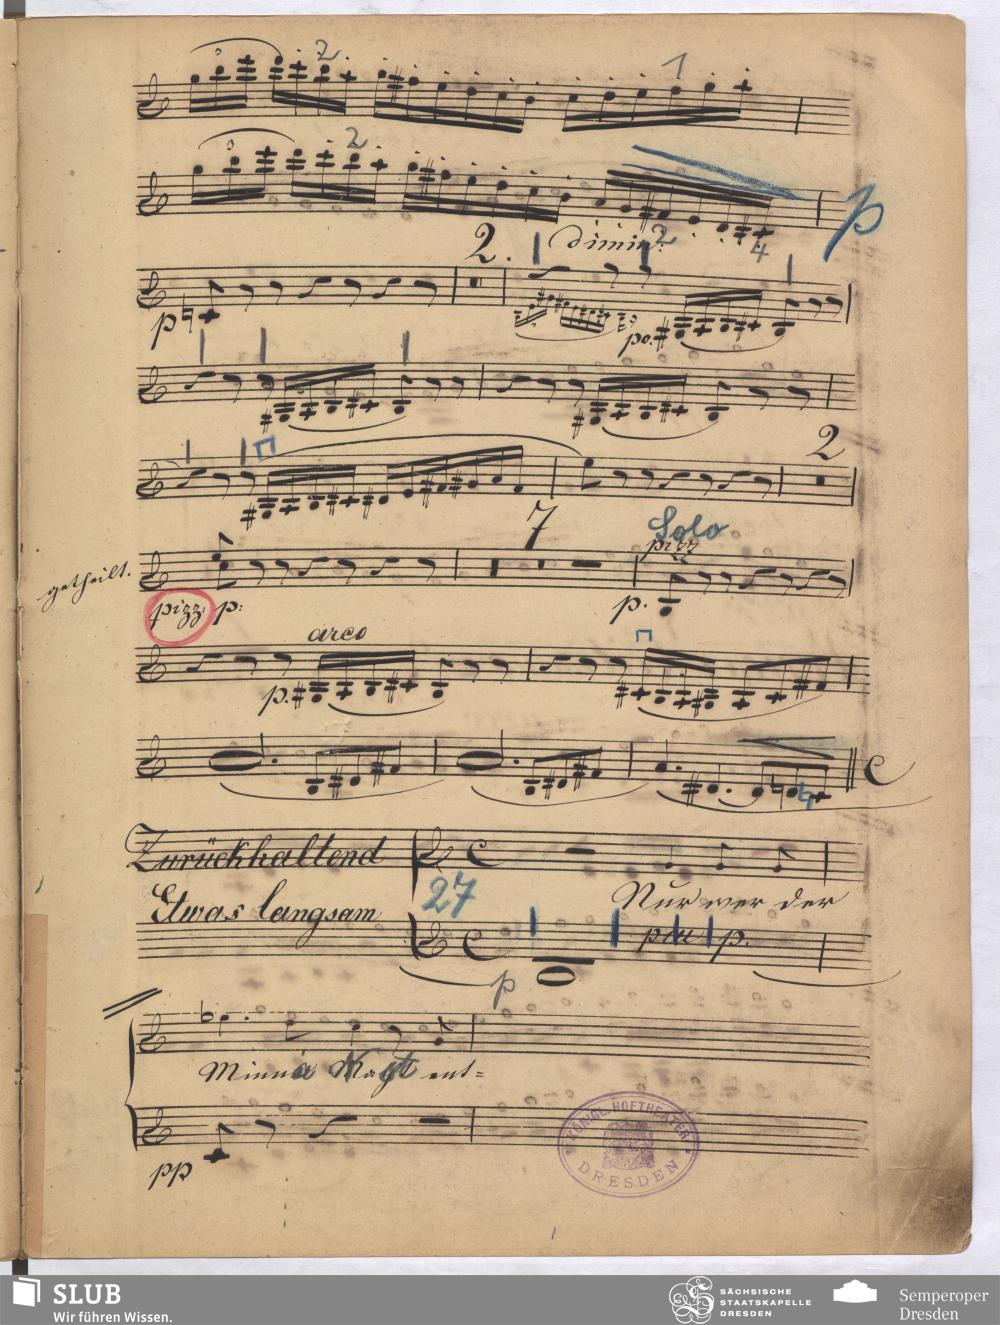 3 2 1
3 2
dimin: 2 4 p
2.
p po.
2
7 Solo
pizz
getheilt.
pizz: p: p.
arco
p.
Zurückhaltend
Nur wer der
Etwas langsam 27
più p.
p
Minne Macht ent=
pp
KÖNIGL. HOFTHEATER
DRESDEN
SLUB
Wir führen Wissen.
SÄCHSISCHE
STAATSKAPELLE
DRESDEN
Semperoper
Dresden